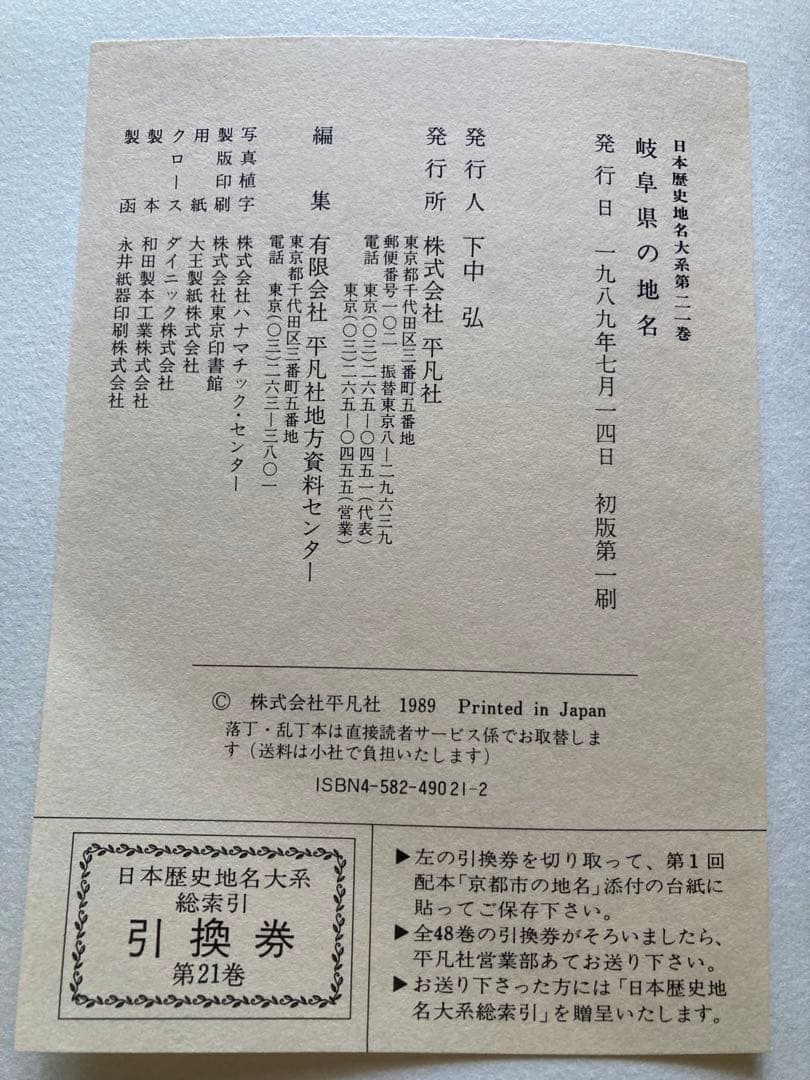 日本歴史地名大系第二一巻
岐阜県の地名
発行日 一九八九年七月一四日 初版第一刷
発行人 下中 弘
発行所 株式会社 平凡社
東京都千代田区三番町五番地
郵便番号一〇二 振替東京八―二九六三九
電話 東京(〇三)二六五―〇四五一(代表)
東京(〇三)二六五―〇四五五(営業)
編集 有限会社 平凡社地方資料センター
東京都千代田区三番町五番地
電話 東京(〇三)二六三―三八〇一
写真植字 株式会社ハナマチック・センター
製版印刷 株式会社東京印書館
用紙 大王製紙株式会社
クロース ダイニック株式会社
製本 和田製本工業株式会社
製函 永井紙器印刷株式会社
© 株式会社平凡社 1989 Printed in Japan
落丁・乱丁本は直接読者サービス係でお取替しま
す(送料は小社で負担いたします)
ISBN4-582-49021-2
日本歴史地名大系
総索引
引換券
第21巻
▶左の引換券を切り取って、第1回
配本「京都市の地名」添付の台紙に
貼ってご保存下さい。
▶全48巻の引換券がそろいましたら、
平凡社営業部あてお送り下さい。
▶お送り下さった方には「日本歴史地
名大系総索引」を贈呈いたします。